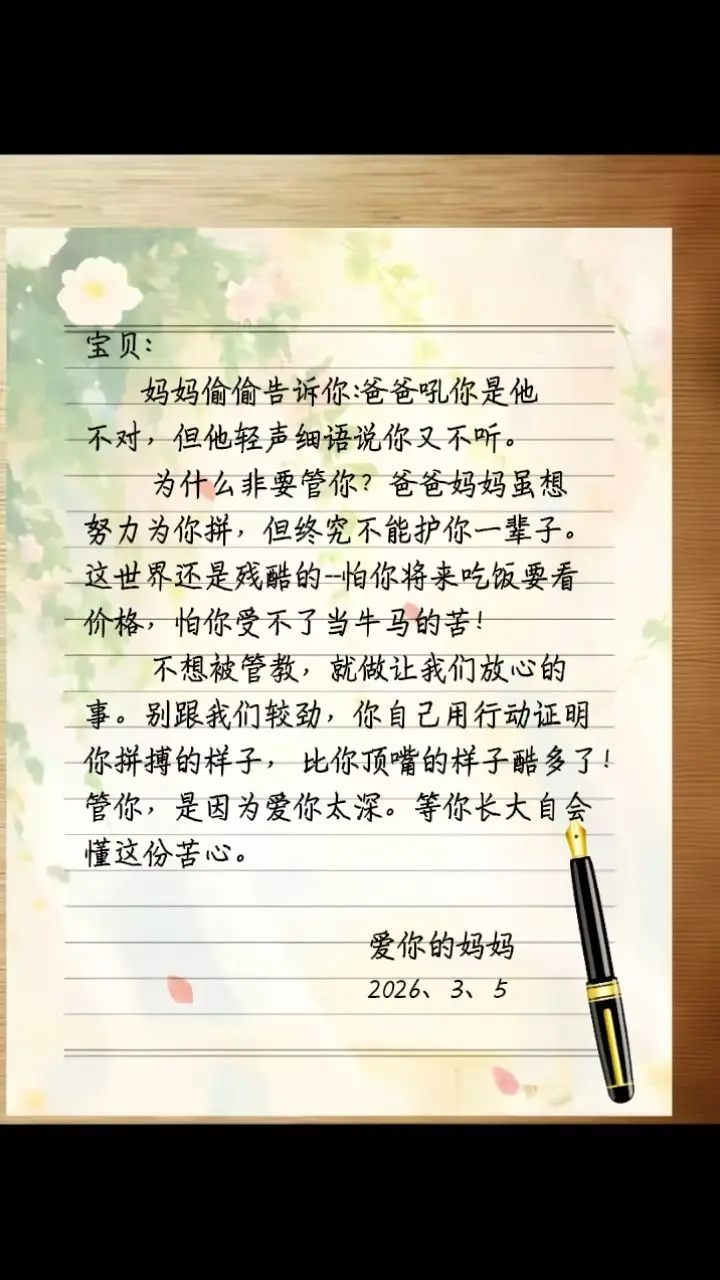 宝贝:
妈妈偷偷告诉你:爸爸吼你是他
不对，但他轻声细语说你又不听。
为什么非要管你？爸爸妈妈虽想
努力为你拼，但终究不能护你一辈子。
这世界还是残酷的--怕你将来吃饭要看
价格，怕你受不了当牛马的苦！
不想被管教，就做让我们放心的
事。别跟我们较劲，你自己用行动证明
你拼搏的样子，比你顶嘴的样子酷多了！
管你，是因为爱你太深。等你长大自会
懂这份苦心。
爱你的妈妈
2026、3、5